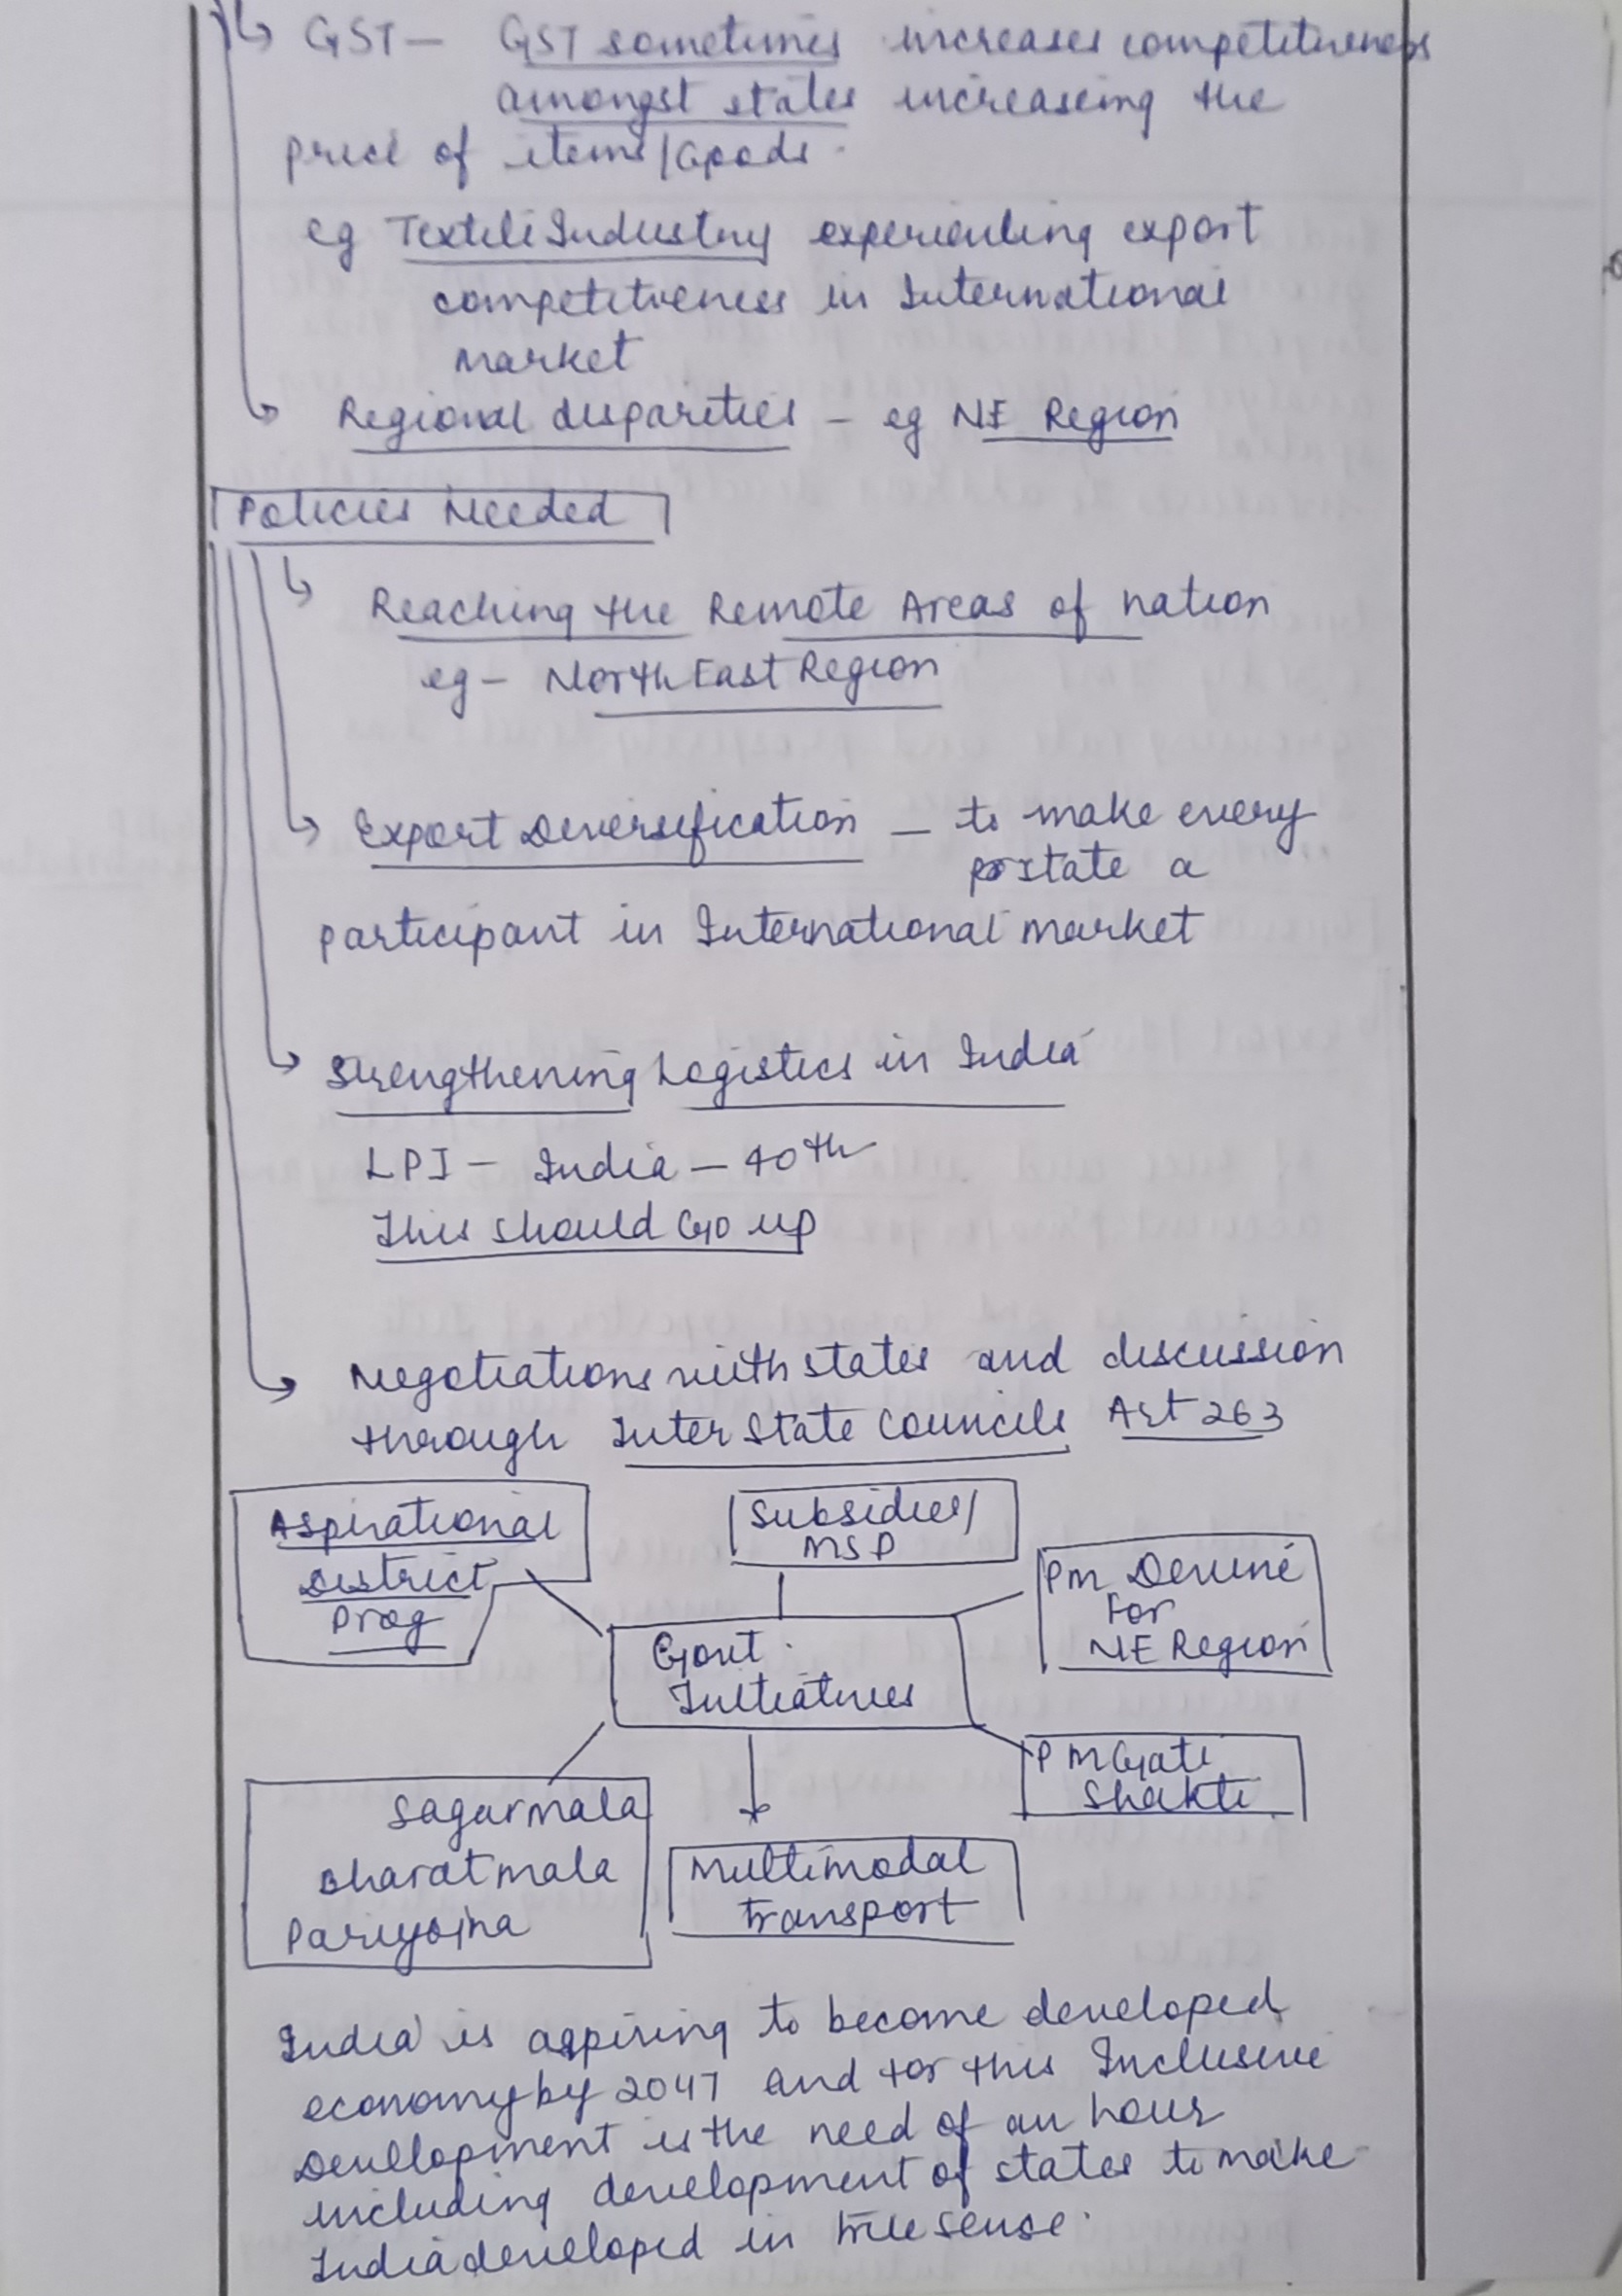 GST — GST sometimes increases competitiveness
amongst states increaseing the
price of items/Goods.
eg Textile Industry experiencing export
competitiveness in International
market
Regional disparities - eg NE Region
Policies Needed
Reaching the Remote Areas of nation
eg - North East Region
Export Diversification — to make every
state a
participant in International market
Strengthening Logistics in India
LPI - India - 40th
This should Go up
Negotiations with states and discussion
through Inter State Councils Art 263
Aspirational
District
Prog
Subsidies/
MSP
PM Devine
For
NE Region
Govt.
Initiatives
PM Gati
Shakti
Sagarmala
Bharatmala
Pariyojna
Multimodal
transport
India is aspiring to become developed
economy by 2047 and for this Inclusive
Development is the need of an hour
including development of states to make
India developed in true sense.